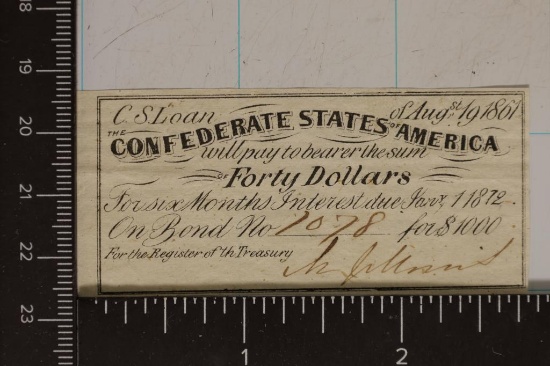 18
19
20
21
22
23
C.S. Loan of Augst 19, 1861
THE CONFEDERATE STATES OF AMERICA
will pay to bearer the sum
OF Forty Dollars
For six Months Interest due Jany 1 1872
On Bond No 1078 for $1000
For the Register of th Treasury
1
2